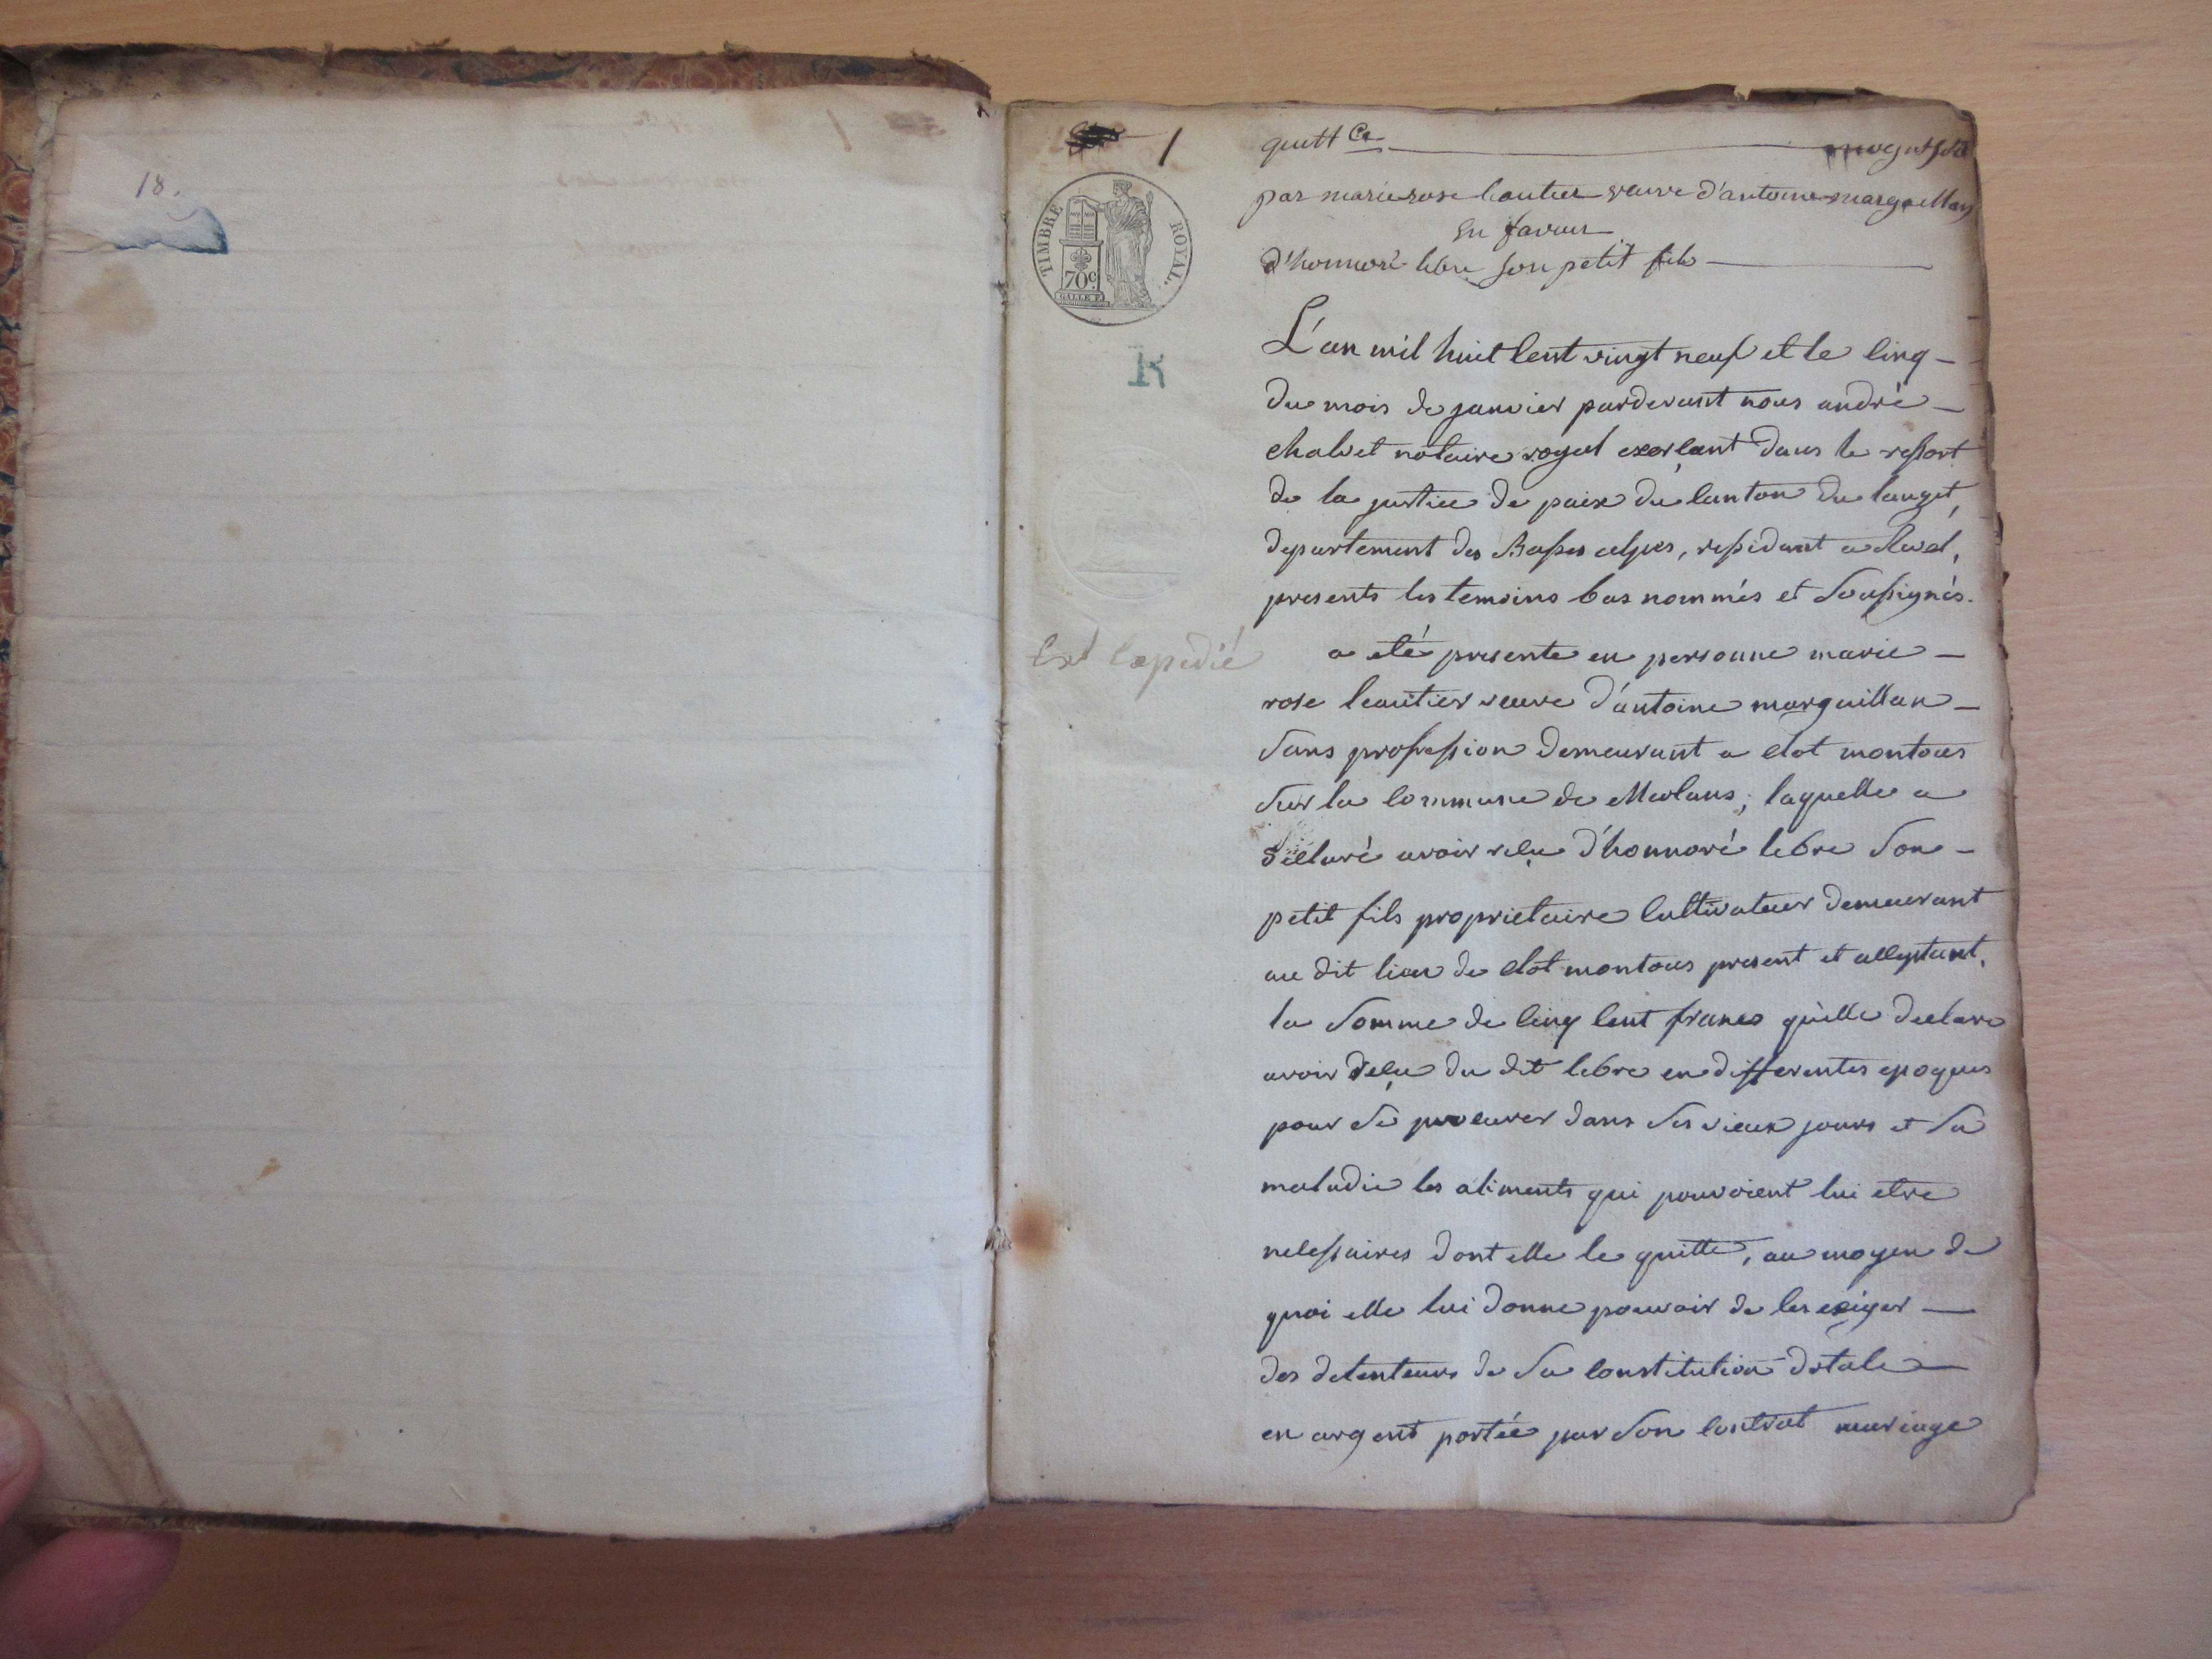 18.
1
quitt ce
par marie rose leautier veuve d'antoine marguillan
En faveur
d'honnoré lebre son petit fils
TIMBRE ROYAL.
70c.
R
L'an mil huit cent vingt neuf et le cinq
du mois de janvier pardevant nous andré
chalvet notaire royal exerçant dans le ressort
de la justice de paix du canton du lauzet,
departement des Basses alpes, residant a
presents les temoins bas nommés et soussignés.
Est Expedié
a eté presente en personne marie
rose leautier veuve d'antoine marguillan
sans profession demeurant a clot montous
sur la commune de Meolans, laquelle a
declaré avoir reçu d'honnoré lebre son
petit fils proprietaire cultivateur demeurant
au dit lieu de clot montous present et acceptant,
la somme de cinq cent francs qu'elle declare
avoir reçu du dit lebre en differentes epoques
pour se procurer dans ses vieux jours et sa
maladie les aliments qui pouvoient lui etre
necessaires dont elle le quitte, au moyen de
quoi elle lui donne pouvoir de les exiger
des detenteurs de sa constitution dotale
en argent portée par son contrat mariage